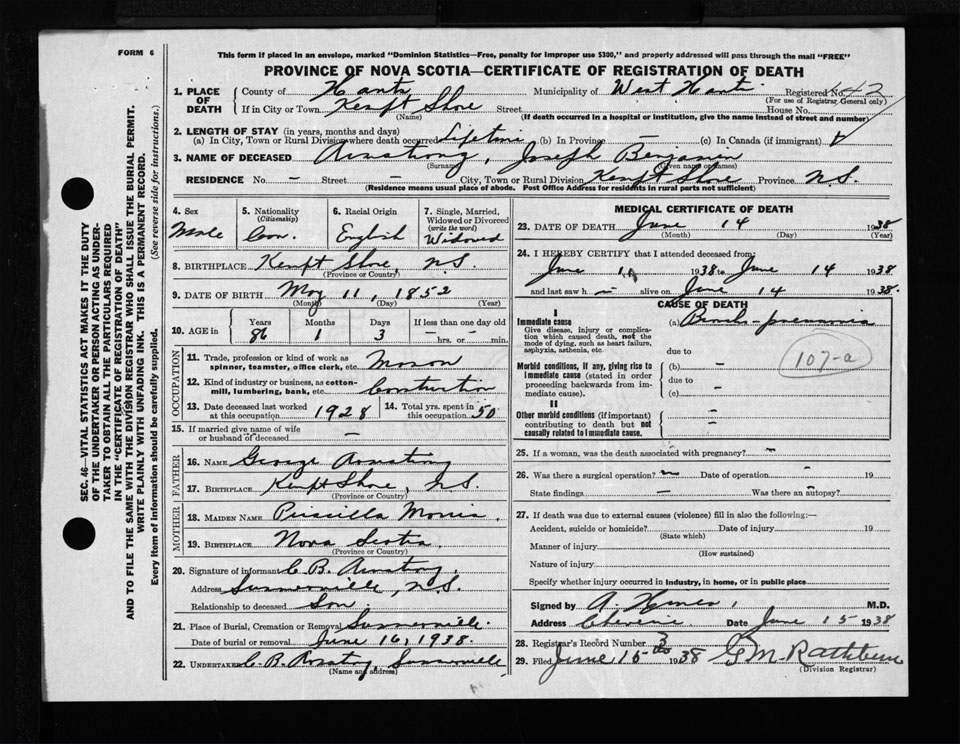 FORM 6
This form if placed in an envelope, marked "Dominion Statistics—Free, penalty for improper use $300," and properly addressed will pass through the mail "FREE"
PROVINCE OF NOVA SCOTIA—CERTIFICATE OF REGISTRATION OF DEATH
1. PLACE OF DEATH County of Hants Municipality of West Hants Registered No. 42
(For use of Registrar General only)
If in City or Town Kempt Shore Street House No.
(Name) (If death occurred in a hospital or institution, give the name instead of street and number)
2. LENGTH OF STAY (in years, months and days)
(a) In City, Town or Rural Division where death occurred Lifetime (b) In Province — (c) In Canada (if immigrant)
3. NAME OF DECEASED Armstrong, Joseph Benjamin
(Surname) (Given name or names)
RESIDENCE No. — Street — City, Town or Rural Division Kempt Shore Province N.S.
(Residence means usual place of abode. Post Office Address for residents in rural parts not sufficient)
4. Sex Male
5. Nationality (Citizenship) Can.
6. Racial Origin English
7. Single, Married, Widowed or Divorced (write the word) Widowed
8. BIRTHPLACE Kempt Shore, N.S.
(Province or Country)
9. DATE OF BIRTH May 11, 1852
(Month) (Day) (Year)
10. AGE in Years Months Days If less than one day old
86 1 3 — hrs. or — min.
OCCUPATION
11. Trade, profession or kind of work as spinner, teamster, office clerk, etc. Mason
12. Kind of industry or business, as cotton-mill, lumbering, bank, etc. Construction
13. Date deceased last worked at this occupation 1928 14. Total yrs. spent in this occupation 50
15. If married give name of wife or husband of deceased —
FATHER
16. NAME George Armstrong
17. BIRTHPLACE Kempt Shore, N.S.
(Province or Country)
MOTHER
18. MAIDEN NAME Priscilla Morris
19. BIRTHPLACE Nova Scotia
(Province or Country)
20. Signature of informant C. B. Armstrong
Address Summerville, N.S.
Relationship to deceased Son
21. Place of Burial, Cremation or Removal Summerville
Date of burial or removal June 16, 1938.
22. UNDERTAKER C. B. Armstrong, Summerville
(Name and address)
MEDICAL CERTIFICATE OF DEATH
23. DATE OF DEATH June 14 1938
(Month) (Day) (Year)
24. I HEREBY CERTIFY that I attended deceased from:
June 1938 to June 14 1938
and last saw h alive on June 14 1938.
CAUSE OF DEATH
I
Immediate cause
Give disease, injury or complication which caused death, not the mode of dying, such as heart failure, asphyxia, asthenia, etc.
(a) Broncho-pneumonia
due to
107-a
Morbid conditions, if any, giving rise to immediate cause (stated in order proceeding backwards from immediate cause).
(b) —
due to —
(c)
II
Other morbid conditions (if important) contributing to death but not causally related to immediate cause.
25. If a woman, was the death associated with pregnancy? —
26. Was there a surgical operation? Date of operation — 19
State findings — Was there an autopsy?
27. If death was due to external causes (violence) fill in also the following:—
Accident, suicide or homicide? Date of injury 19
(State which)
Manner of injury
(How sustained)
Nature of injury
Specify whether injury occurred in industry, in home, or in public place
Signed by M.D.
Address Cheverie Date June 15 1938
28. Registrar's Record Number 3
29. Filed June 15 1938 G M. Rathbun
(Division Registrar)
SEC. 46—VITAL STATISTICS ACT MAKES IT THE DUTY
OF THE UNDERTAKER OR PERSON ACTING AS UNDER-
TAKER TO OBTAIN ALL THE PARTICULARS REQUIRED
IN THE "CERTIFICATE OF REGISTRATION OF DEATH"
AND TO FILE THE SAME WITH THE DIVISION REGISTRAR WHO SHALL ISSUE THE BURIAL PERMIT.
WRITE PLAINLY WITH UNFADING INK. THIS IS A PERMANENT RECORD.
Every item of information should be carefully supplied. (See reverse side for instructions.)